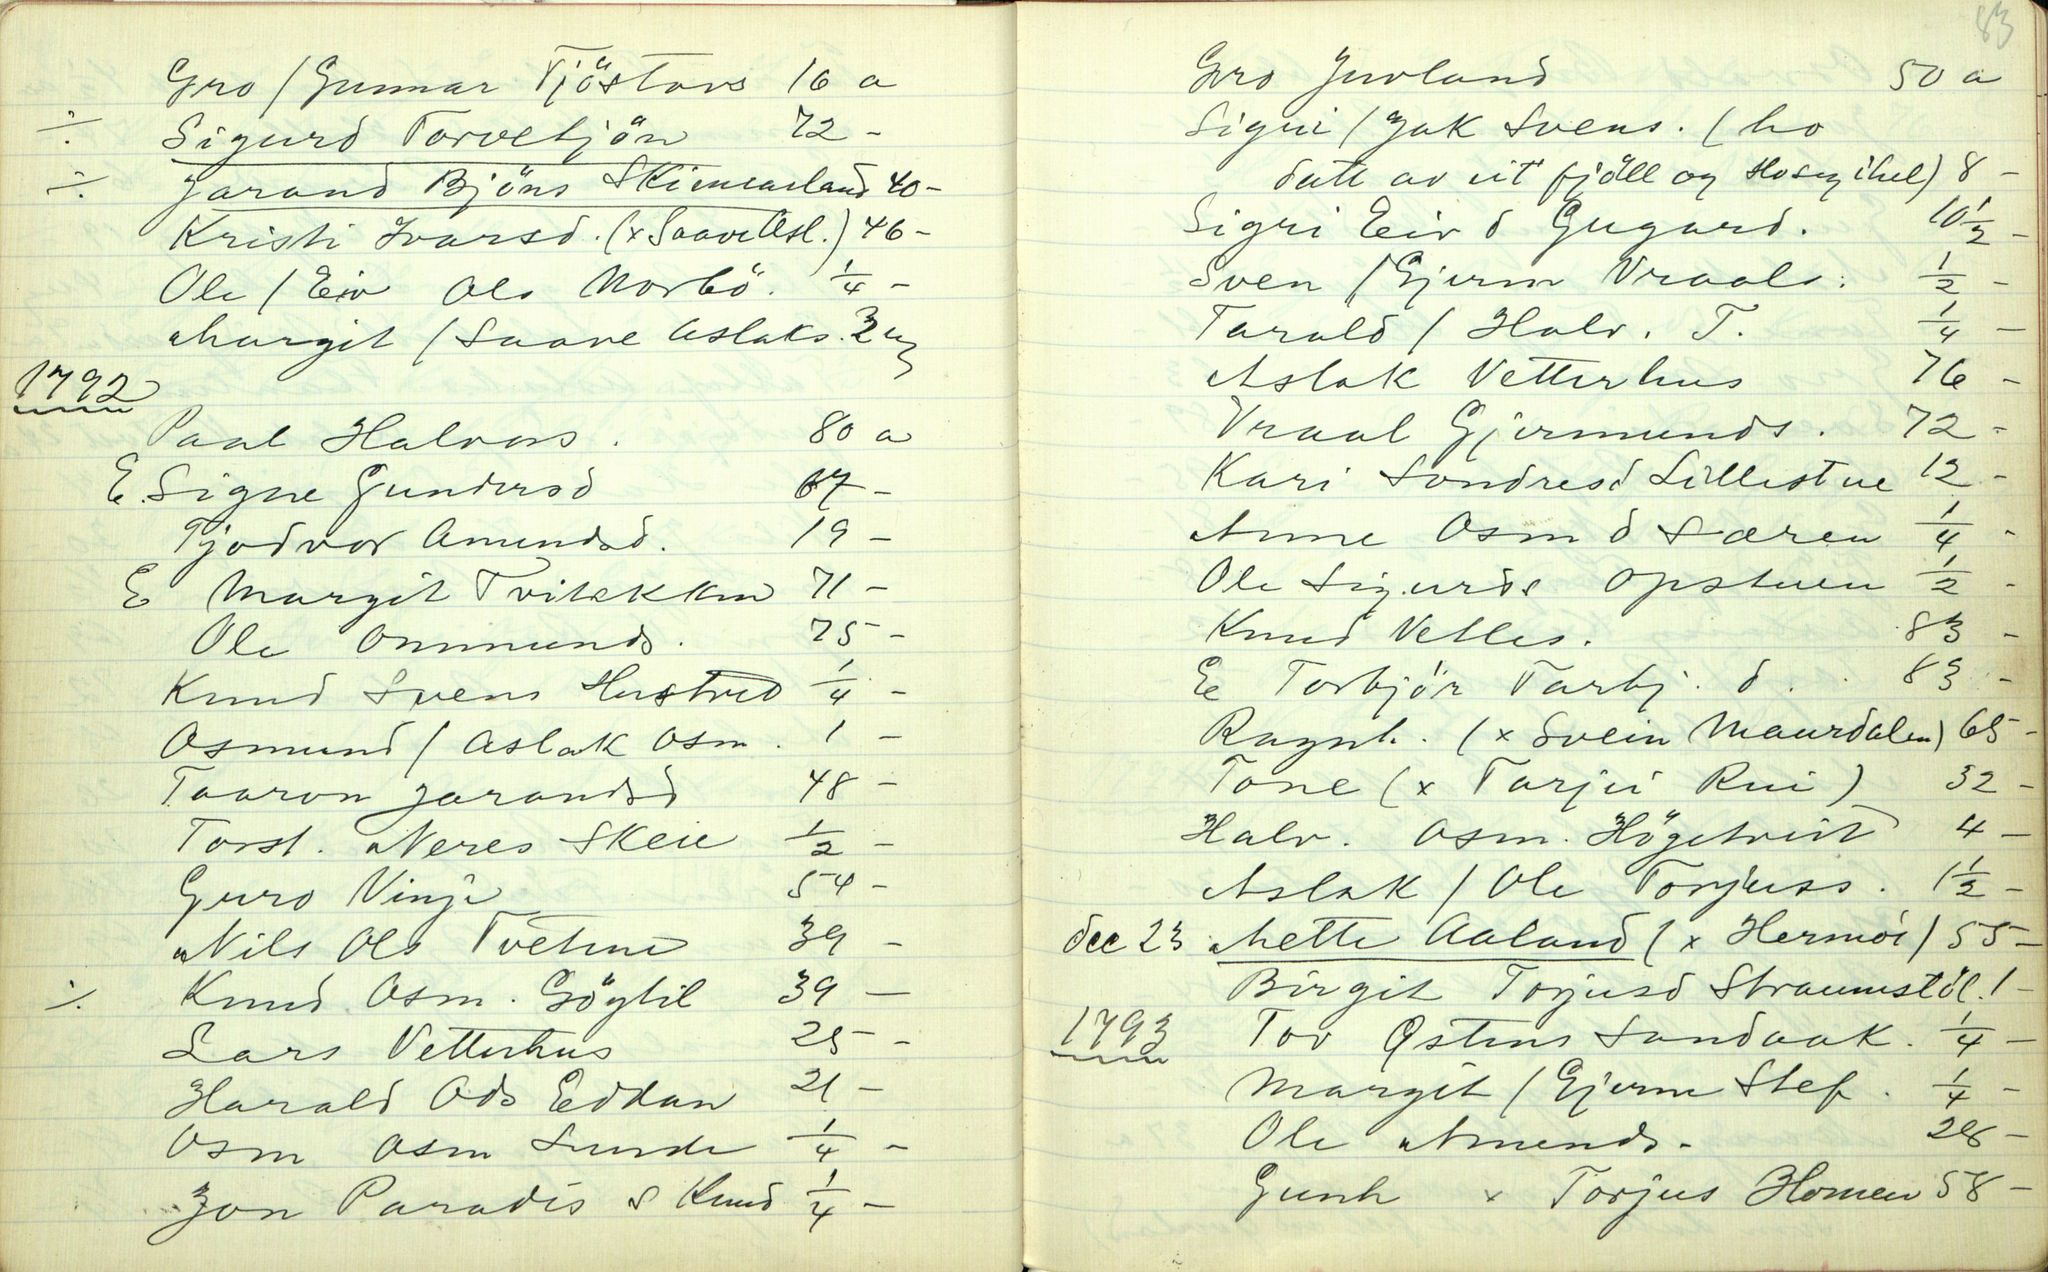 Gro / Gunnar Tjöstovs 16 a
÷ Sigurd Torvetjön 72 -
÷ Jarand Bjöns Skinnarland 40 -
Kristi Ivarsd. (x Saave Asl.) 46 -
Ole / Eiv Ols Norbö. 1/4 -
Margit / Saave Aslaks.
1792
Paal Halvors. 80 a
E. Signe Gundersd 67 -
Tjodvor Amundsd. 19 -
E Margit Tvitekkin 71 -
Ole Ommunds. 75 -
Knud Svens Hustved 1/4 -
Osmund / Aslak Osm. 1 -
Taaron Jarandsd 48 -
Torst. Neres Skeie 1/2 -
Guro Vinje 54 -
Nils Ols Tveitene 39 -
÷ Knud Osm. Göytil 39 -
Lars Vetterhus 25 -
Harald Ods Eddan 21 -
Osm Osm Sunde 1/4 -
Jon Paradis s Knud 1/4 -
83
Gro Juvland 50 a
Sigri / Jak Svens. (ho
datt av eit fjöll og slo seg ihel) 8 -
Sigri Eiv d Gugard. 10 1/2 -
Sven / Gjerm Vraals. 1/2 -
Tarald / Halv. T. 1/4 -
Aslak Vetterhus 76 -
Vraal Gjermunds. 72 -
Kari Sondresd Lillestue 12 -
Anne Osm d Særen 1/4 -
Ole Sigurds Opstuen 1/2 -
Knud Vetles. 83 -
E Torbjör Tarbj. d. 83 -
Ragnh. (x Svein Maurdalen) 65 -
Tone (x Tarjei Rui) 32 -
Halv. Osm. Högetveit 4 -
Aslak / Ole Torjuss. 1 1/2 -
dec 23 Mette Aaland (x Hermöi) 55 -
Birgit Torjusd Straumstöl. 1 -
1793 Tov Østens Sandaak. 1/4 -
Margit / Gjerm Stef. 1/4 -
Ole Amunds. 28 -
Gunh x Torjus Homen 58 -